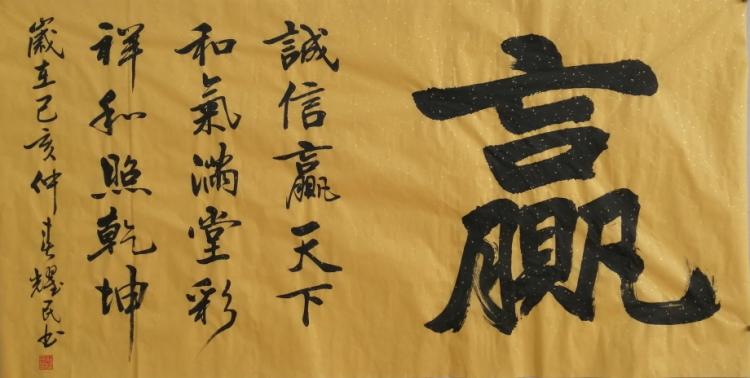 贏
誠信贏天下
和氣滿堂彩
祥和照乾坤
歲在己亥仲春耀民书